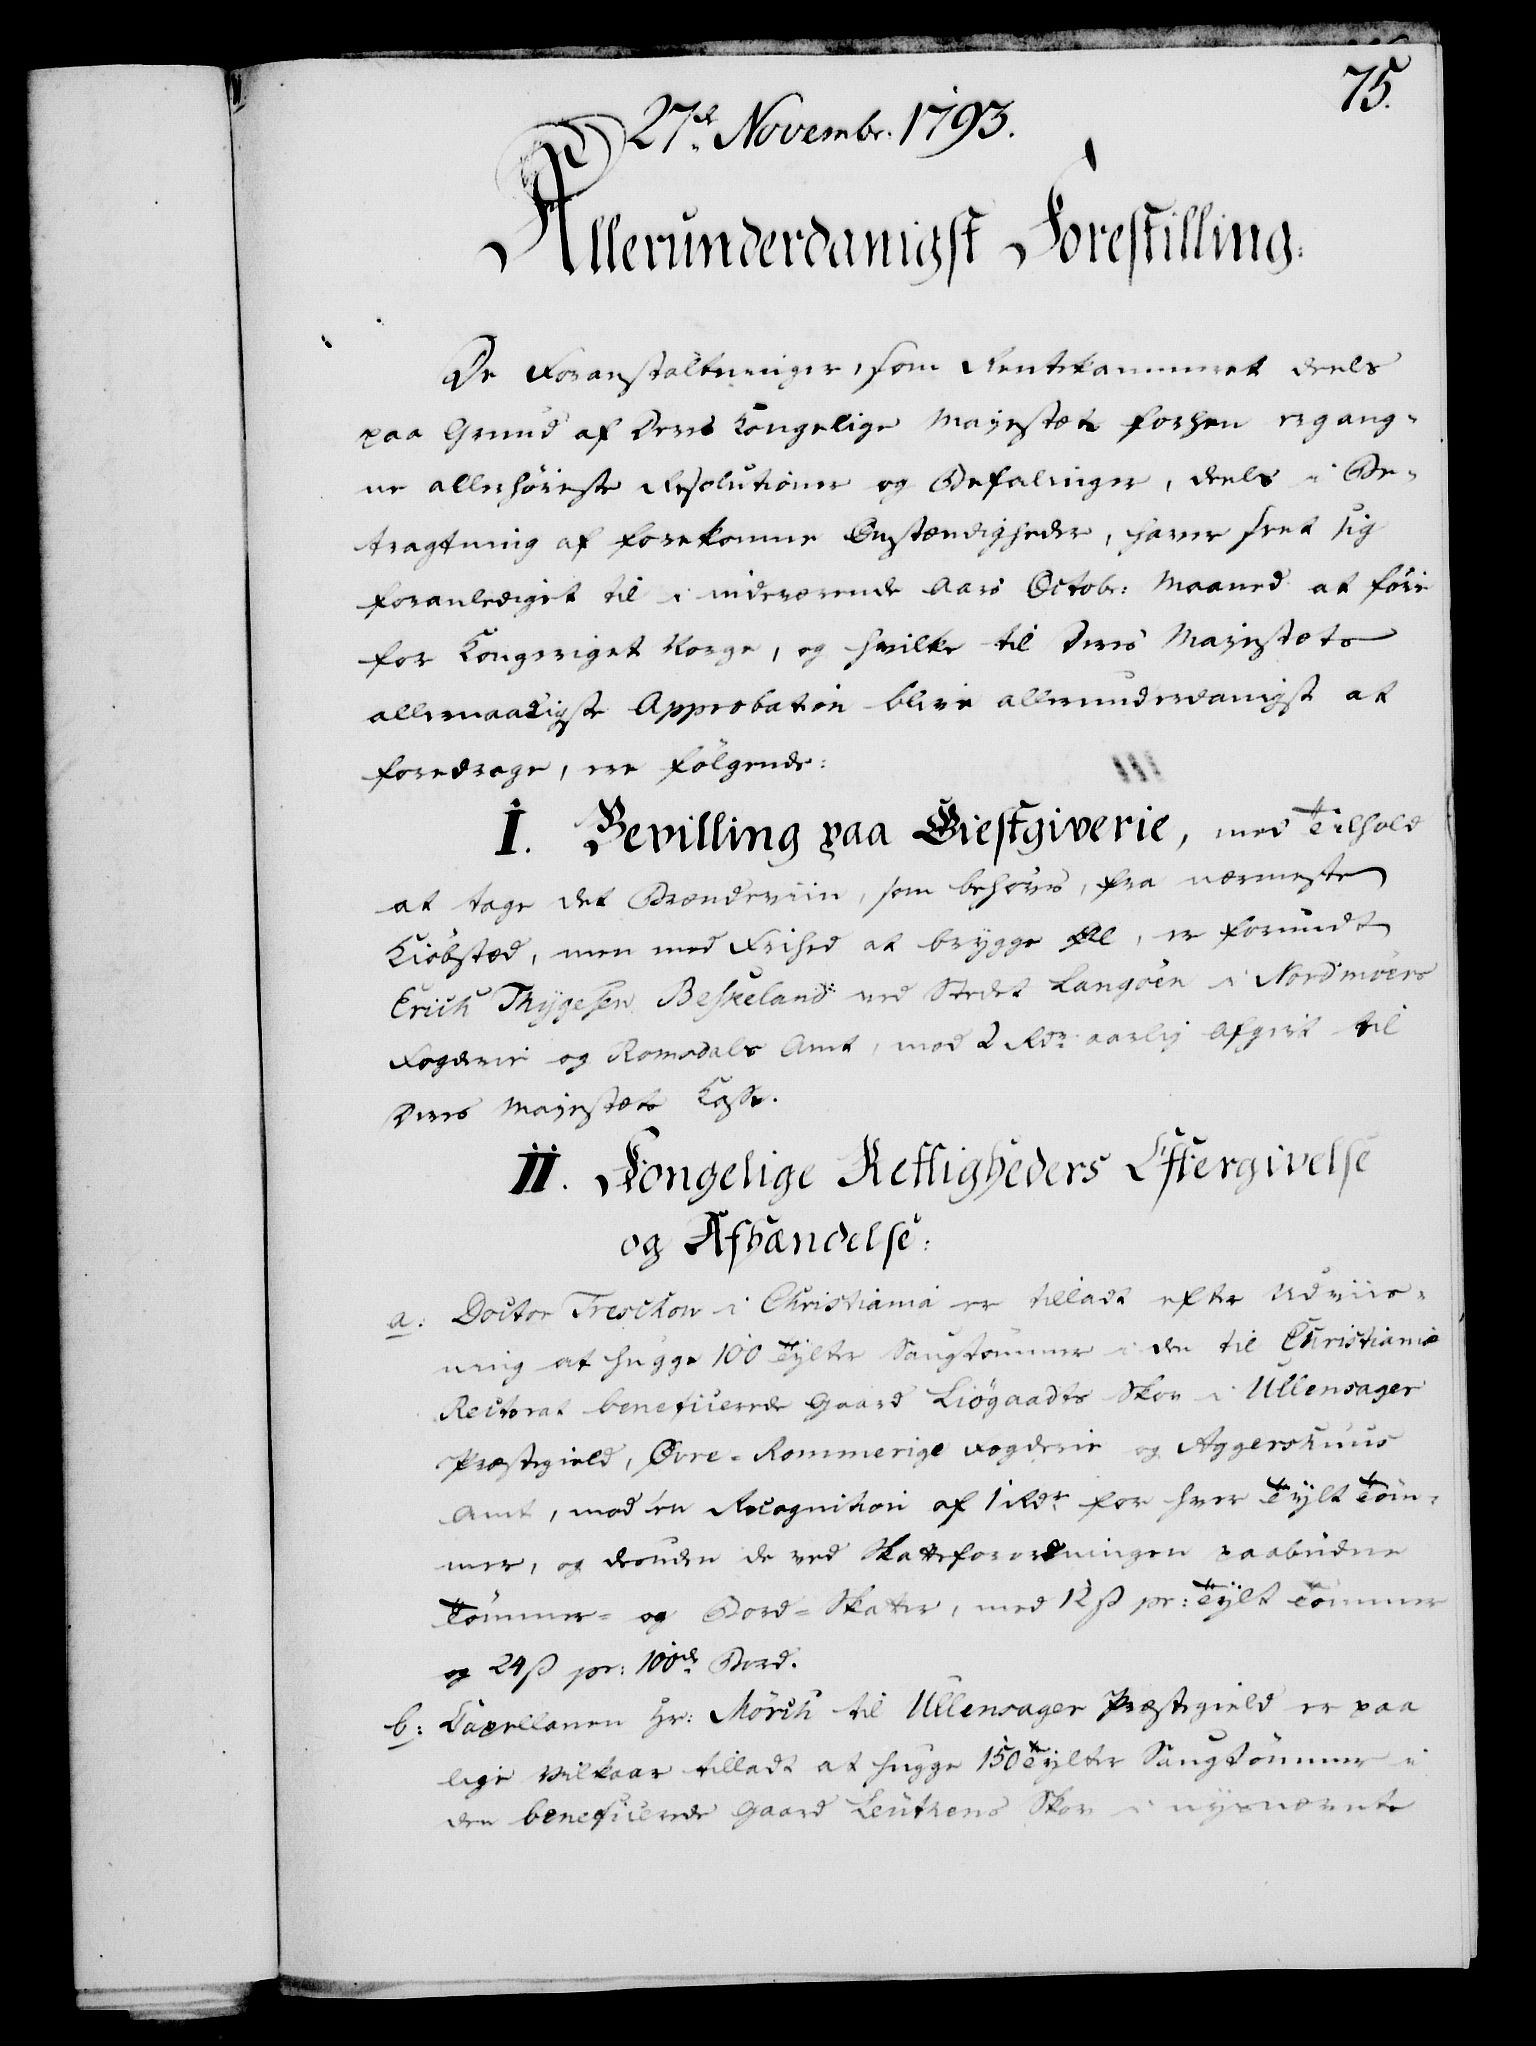 75.
27de Novembr. 1793.
Allerunderdanigst Forestilling.
De Foranstaltninger, som Rentekammeret deels
paa Grund af Deres Kongelige Mayestæts forhen ergang-
ne allerhöieste Resolutioner og Befalinger, deels i Be-
tragtning af forekomne Omstændigheder, haver seet sig
foranlediget til i indeværende Aars Octobr: Maaned at föie
for Kongeriget Norge, og hvilke til Deres Mayestæts
allernaadigste Approbation blive allerunderdanigst at
foredrage, ere fölgende:
I. Bevilling paa Giestgiverie, med Tilhold
at tage det Brændeviin, som behöves, fra nærmeste
Kiöbstæd, men med Frihed at brygge Øll, er forundt
Erich Thygesen Beskeland ved Stedet Langöen i Nordmöers
Fogderie og Romsdals Amt, mod 2 Rdr aarlig Afgivt til
Deres Mayestæts Kasse.
II. Kongelige Rettigheders Eftergivelse
og Afhændelse:
a: Doctor Treschow i Christiania er tilladt efter Udviis-
ning at hugge 100 Tylter Saugtömmer i den til Christiania
Rectorat beneficerede Gaard Liögaadts Skov i Ullensager
Præstegield, Øvre-Rommerige Fogderie og Aggershuus
Amt, mod en Recognition af 1 Rdr for hver Tylt Töm-
mer, og desuden de ved Skatteforordningen paabudne
Tömmer- og Bord-Skatter, med 12 ß pr: Tylt Tömmer
og 24 ß pr: 100de Bord.
b: Capellanen Hr: Mörch til Ullensager Præstegield er paa
lige Vilkaar tilladt at hugge 150 Tylter Saugtömmer i
den beneficerede Gaard Leuthens Skov i nysnævnte